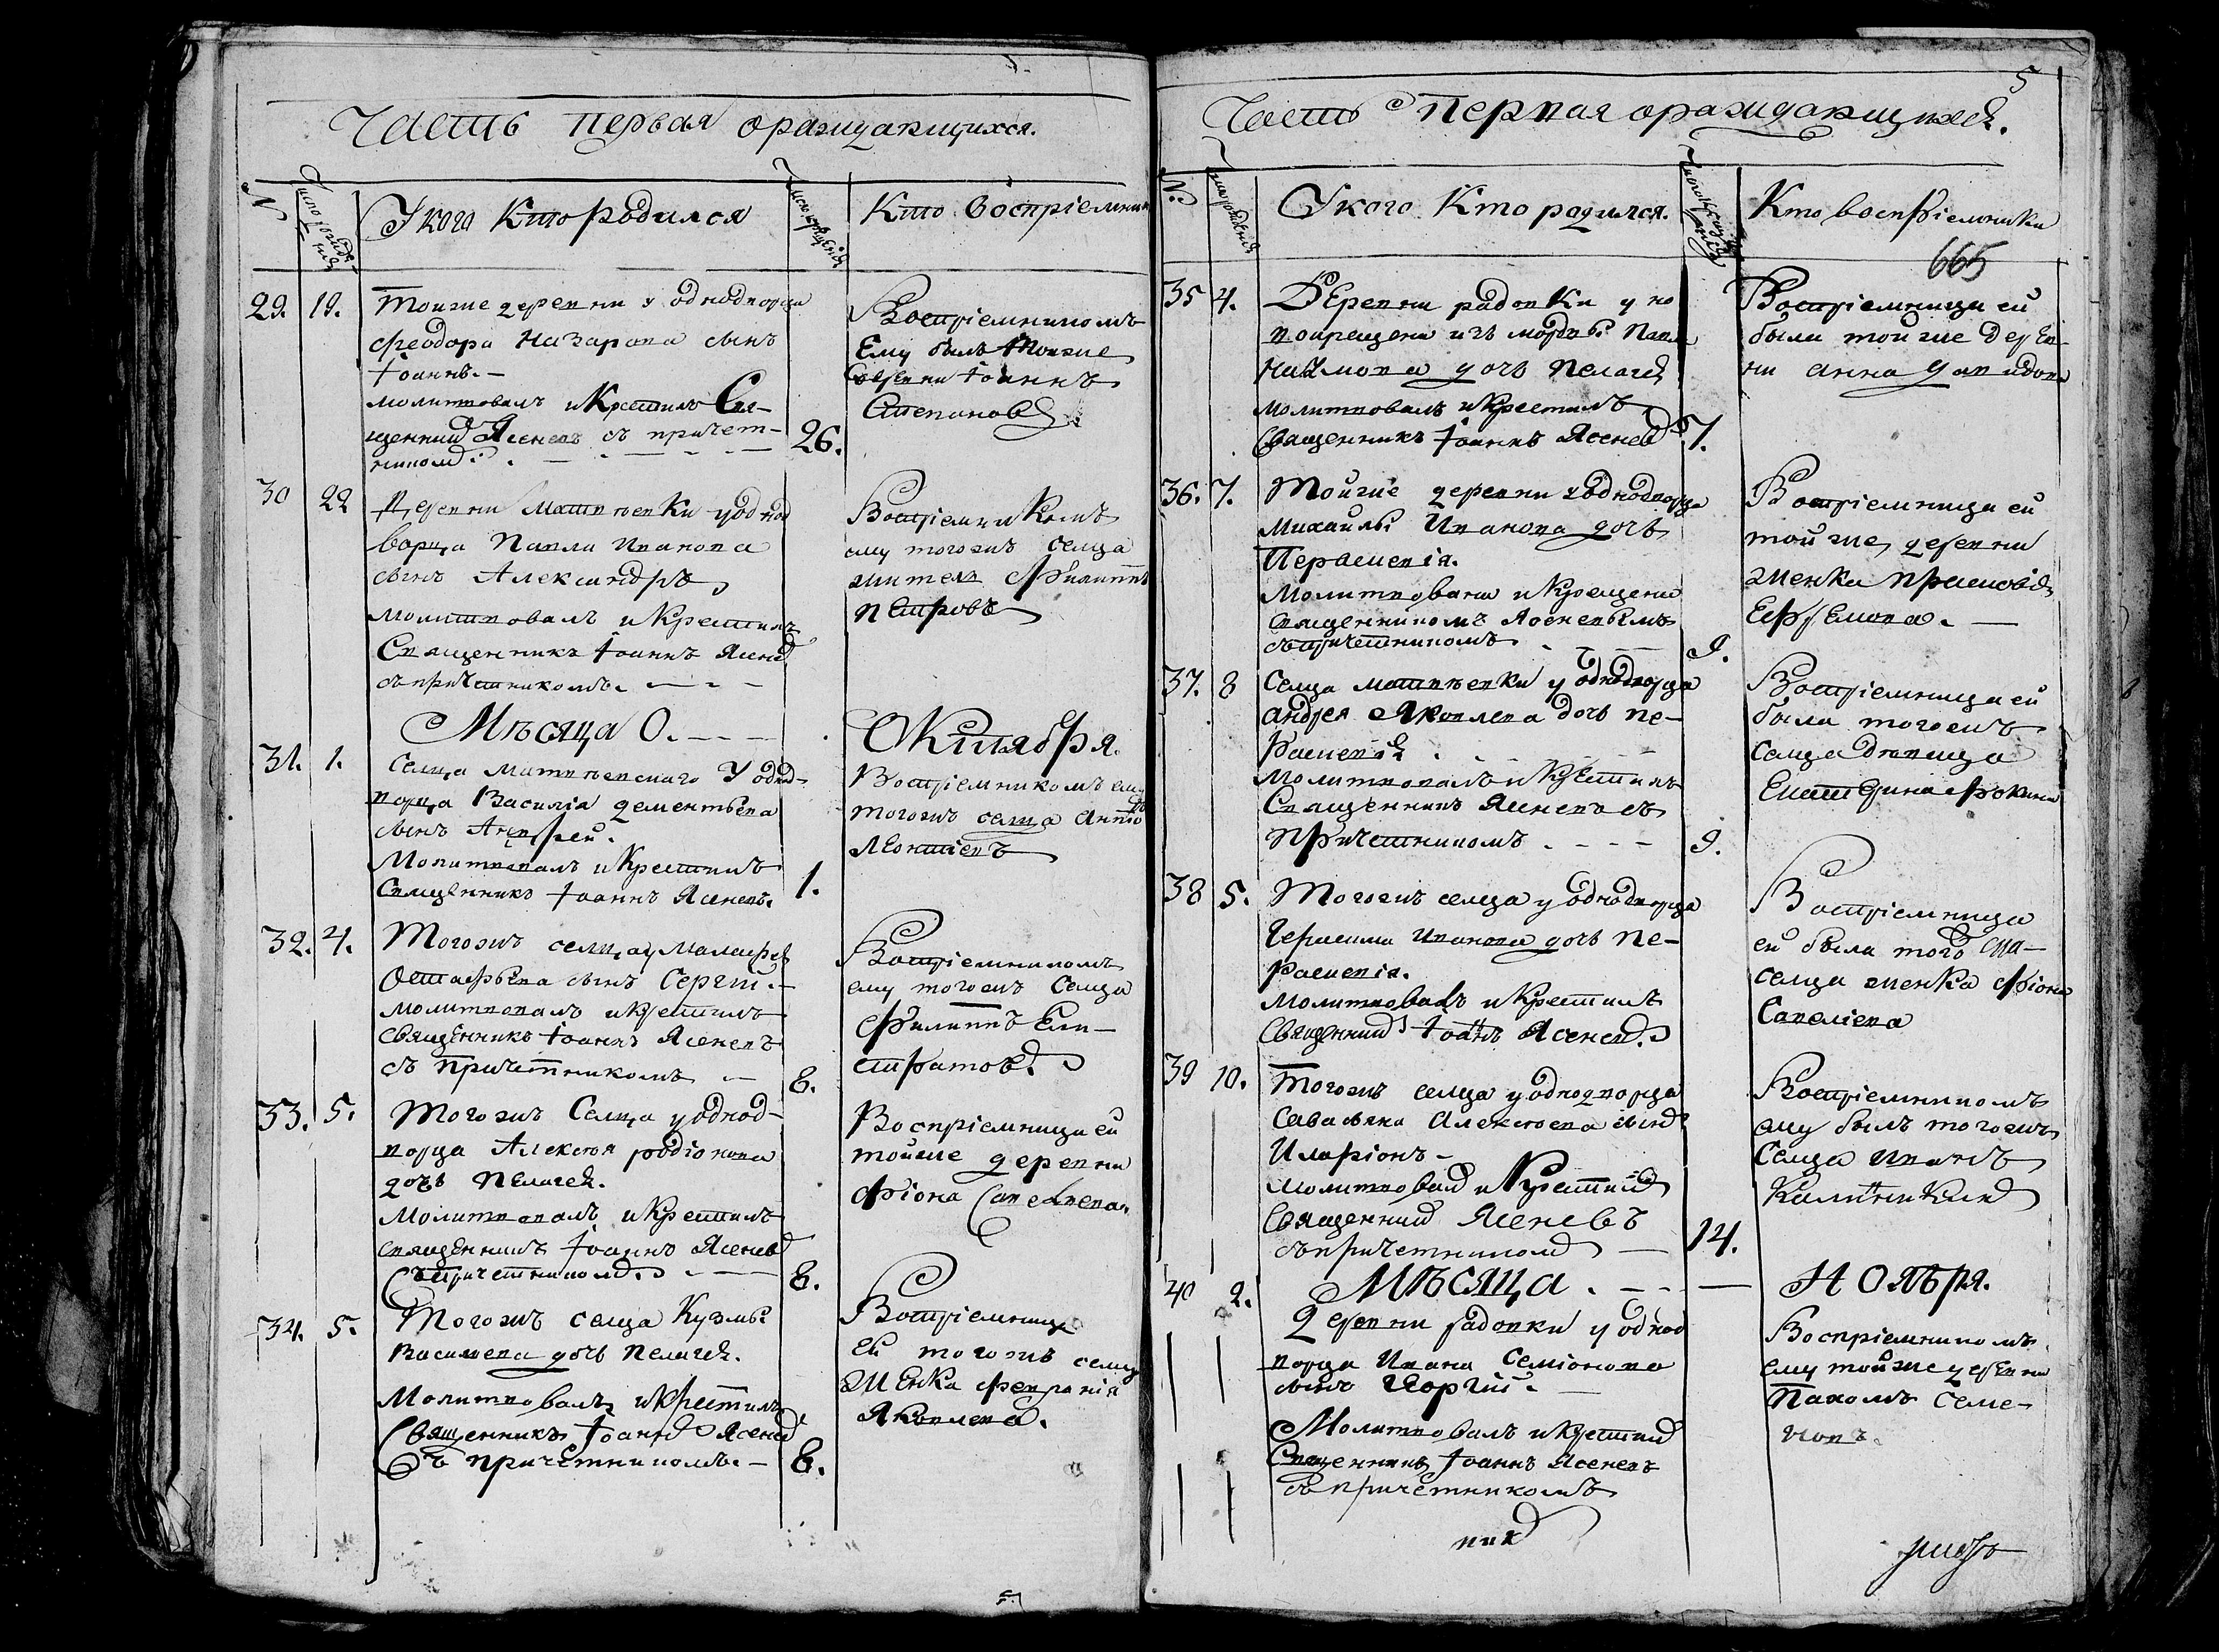 Часть первая ораждающихся.
№
Число рожде-
ния
У кого кто родился
Число крещенія
Кто воспріемник
29. 19. Тоиже деревни у однодворца
Феодора Назарова сынъ
Іоаннъ.
молитвовалъ и крестилъ Свя-
щенникъ Ясеневъ съ причет-
никомъ. 26.
Воспріемникомъ
ему былъ тоиже
деревни Іоаннъ
Степановъ
30 22 Деревни Матвѣевки у однод
ворца Павла Иванова
сынъ Александръ
молитвовалъ и крестилъ
Священникъ Іоаннъ Ясенев
съ причетникомъ.
Воспріемникомъ
ему тогожъ селца
житель Филиппъ
Петровъ
Мѣсяца О.
Октября.
31. 1. Селца Матвѣевскаго у однод-
ворца Василія Дементьева
сынъ Андрей.
Молитвовалъ и крестилъ
Священникъ Іоаннъ Ясеневъ. 1.
Воспріемникомъ ему
тогожъ селца
Леонтіевъ
32. 4. Тогожъ селца у Малафея
Остафьева сынъ Сергій.
молитвовалъ и крестилъ
священникъ Іоаннъ Ясеневъ
съ причетникомъ 6.
Воспріемникомъ
ему тогожъ Селца
Филиппъ Ели-
стратовъ.
33. 5. Тогожъ Селца у однод-
ворца Алексѣя Родіонова
дочь Пелагея.
Молитвовалъ и крестилъ
священникъ Іоаннъ Ясеневъ
съ причетникомъ. 6.
Воспріемница ей
тойже деревни
Фіона Савельева
34. 5. Тогожъ селца Кузмы
Василева дочь Пелагея.
Молитвовалъ и крестилъ
Священникъ Іоаннъ Ясеневъ
Съ причетникомъ. 6.
Воспріемница
ей тогожъ селца
женка Февронія
Яковлева.
5
Часть первая ораждающихся.
№
Число рожденія
У кого кто родился.
Кто воспріемники
665
35 4. Деревни Радовки у но
вокрещена изъ мордвы Павла
Наумова дочь Пелагея
молитвовалъ и крестилъ
Священникъ Іоаннъ Ясенев 7.
Воспріемница ей
была тойже дерев-
ни Анна Давидова
36. 7. Тойже деревни у однодворца
Михаилы Иванова дочь
Параскевія.
Молитвована и крещена
священникомъ Ясеневымъ
съ причетникомъ. 9.
Воспріемница ей
тойже деревни
женка Прасковія
Ефремова.
37. 8 Селца Матвѣевки у однодворца
Андрея Яковлева дочь Па-
раскевія.
Молитвовалъ и крестилъ
Священникъ Ясеневъ съ
причетникомъ 9.
Воспріемница ей
была тогожъ
селца девица
Екатерина Фокина
38 5. Тогожъ селца у однодворца
Герасима Иванова дочь Па-
раскевія.
молитвовалъ и крестилъ
Священникъ Іоаннъ Ясенев.
Воспріемница
ей была того жа-
селца женка Фіона
Савеліева
39 10. Тогожъ селца у однодворца
Савасьяна Алексѣева сынъ
Иларіонъ
молитвовалъ и крестилъ
Священникъ Ясеневъ
съ причетникомъ 14.
Воспріемникомъ
ему былъ тогожъ
Селца Иванъ
Калиникинъ
Мѣсяца Ноября.
40 2. Деревни Радовки у однод
ворца Ивана Семіонова
сынъ Георгій.
Молитвовалъ и крестилъ
Священникъ Іоаннъ Ясеневъ
съ причетникомъ
Воспріемникомъ
ему тойже деревни
Пахомъ Семе-
новъ